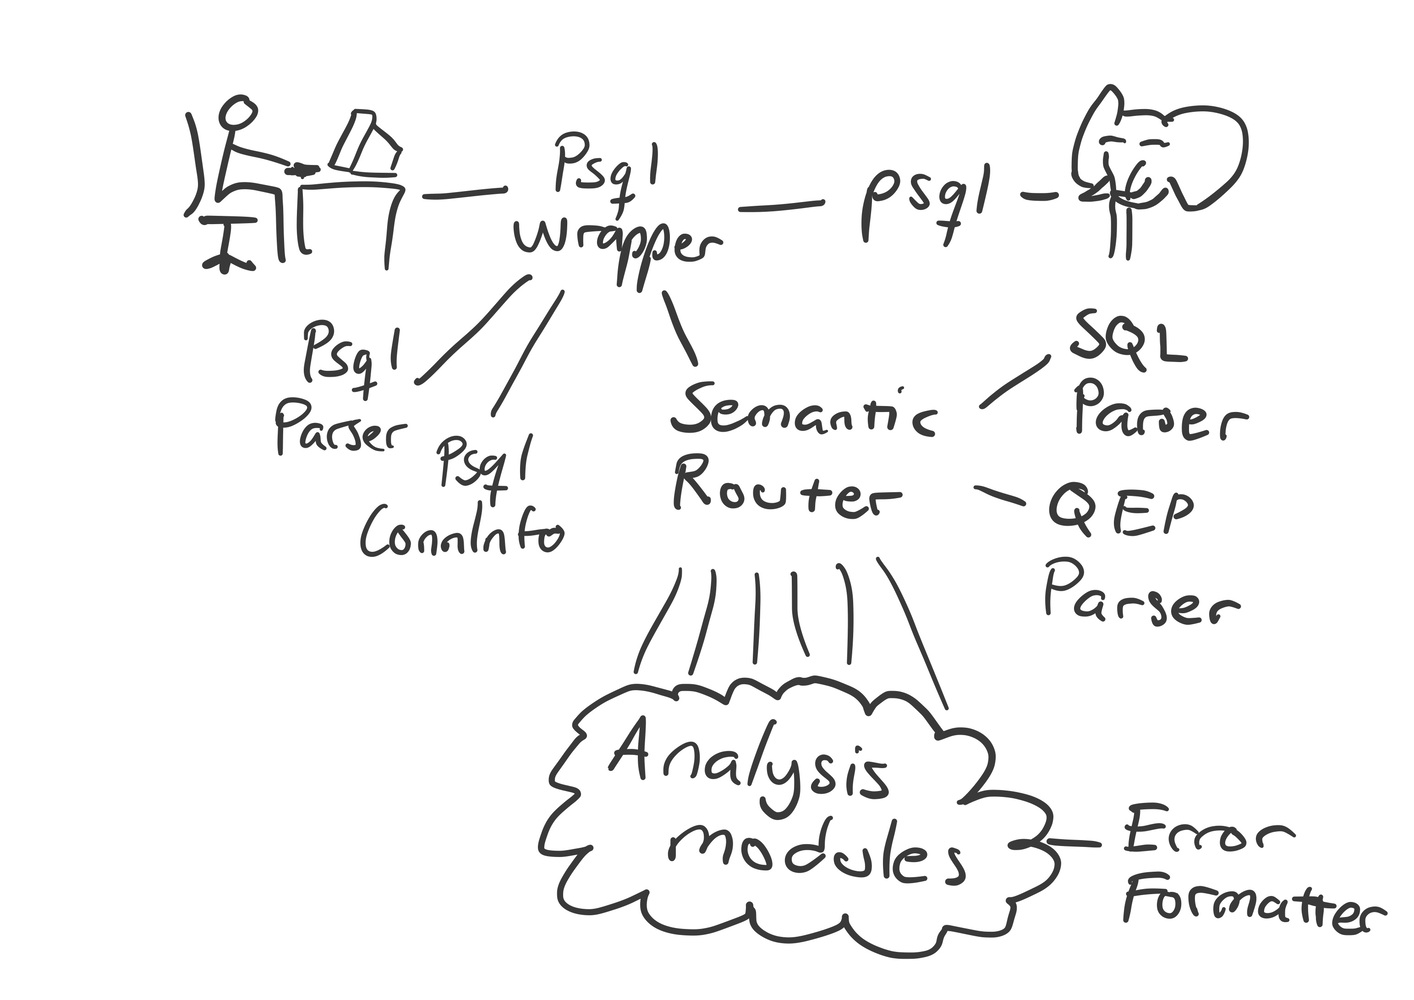 Psql
wrapper
psql
Psql
Parser
Psql
ConnInfo
Semantic
Router
SQL
Parser
QEP
Parser
Analysis
modules
Error
Formatter